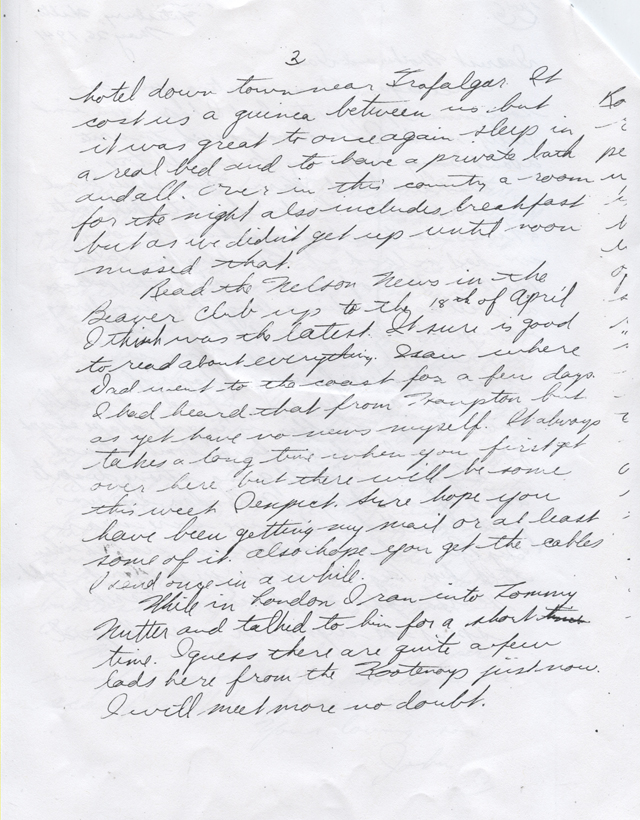 3
hotel down town near Trafalgar. It
cost us a guinea between us but
it was great to once again sleep in
a real bed and to have a private bath
and all. Over in this country a room
for the night also includes breakfast
but as we didn't get up until noon
missed that.
Read the Nelson News in the
Beaver Club up to the 18th of April
I think was the latest. It sure is good
to read about everything. I saw where
Dad went to the coast for a few days.
I had heard that from Frampton but
as yet have no news myself. It always
takes a long time when you first get
over here but there will be some
this week I expect. Sure hope you
have been getting my mail or at least
some of it. also hope you get the cables
I send once in a while.
While in London I ran into Tommy
Nutter and talked to him for a short
time. I guess there are quite a few
lads here from the Kootenays just now.
I will meet more no doubt.